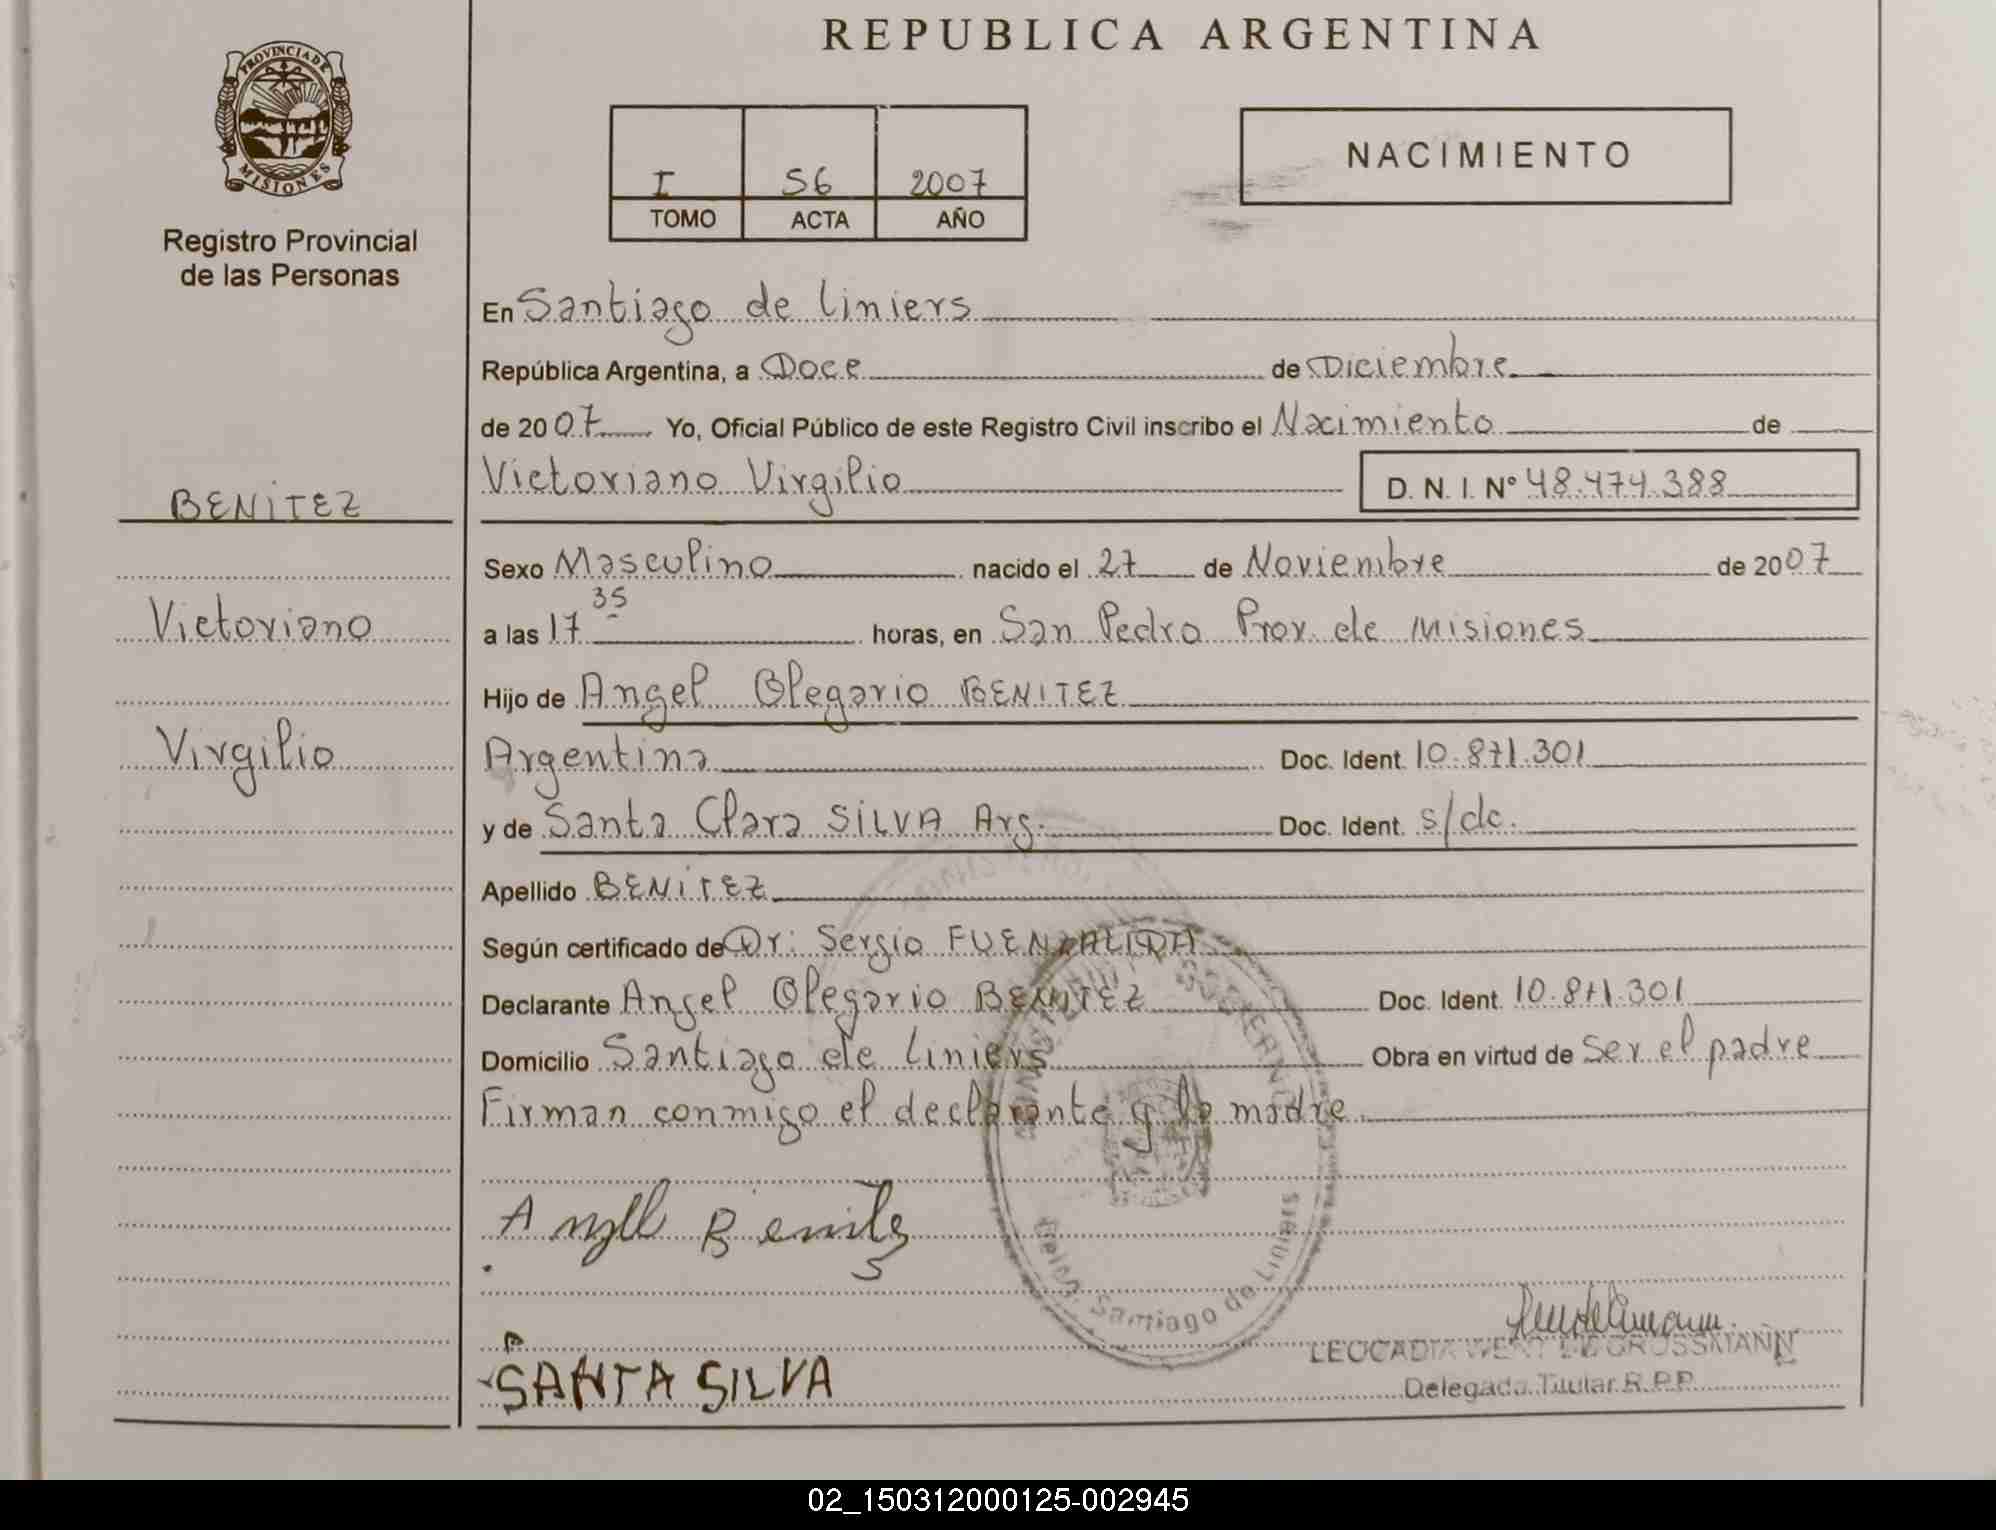 REPUBLICA ARGENTINA
PROVINCIA DE
MISIONES
Registro Provincial
de las Personas
I S6 2007
TOMO ACTA AÑO
NACIMIENTO
En Santiago de Liniers
República Argentina, a Doce de Diciembre
de 2007 Yo, Oficial Público de este Registro Civil inscribo el Nacimiento de
Victoriano Virgilio D. N. I. N° 48.474.388
BENITEZ
Victoriano
Virgilio
Sexo Masculino nacido el 27 de Noviembre de 2007
a las 17 35 horas, en San Pedro Prov. de Misiones
Hijo de Angel Olegario BENITEZ
Argentina Doc. Ident. 10.871.301
y de Santa Clara SILVA Arg. Doc. Ident. s/dc.
Apellido BENITEZ
Según certificado de Dr: Sergio FUENZALIDA
Declarante Angel Olegario BENITEZ Doc. Ident. 10.871.301
Domicilio Santiago de Liniers Obra en virtud de Ser el padre
Firman conmigo el declarante y la madre
Angel Benitez
SANTA SILVA
Santiago de Liniers
LEOCADIA WENT DE GRUSSMANN
Delegada Titular R.P.P.
02_150312000125-002945